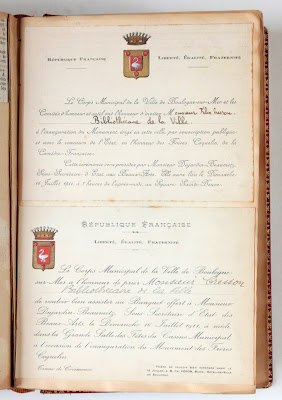 République Française
Liberté, Égalité, Fraternité
Le Corps Municipal de la Ville de Boulogne-sur-Mer et les
Comités d'honneur et ont l'honneur d'inviter Monsieur
Bibliothécaire de la Ville
à l'inauguration du Monument érigé en cette ville, par souscription publique
et sous le concours de l'État, en l'honneur des Frères Coquelin de la
Comédie-Française.
Cette cérémonie sera présidée par Monsieur Dujardin-Beaumetz,
Sous-Secrétaire d'État aux Beaux-Arts. Elle aura lieu le Dimanche
16 Juillet 1911, à 3 heures de l'après-midi, au Square
République Française
Liberté, Égalité, Fraternité
Le Corps Municipal de la Ville de Boulogne-
sur-Mer a l'honneur de prier Monsieur
Bibliothécaire de la Ville
de vouloir bien assister au Banquet offert à Monsieur
Dujardin-Beaumetz, Sous-Secrétaire d'État des
Beaux-Arts, le Dimanche 16 Juillet 1911, à midi,
dans la Grande Salle des Fêtes du Casino Municipal,
à l'occasion de l'inauguration du Monument des Frères
Coquelin.
Tenue de Cérémonie.